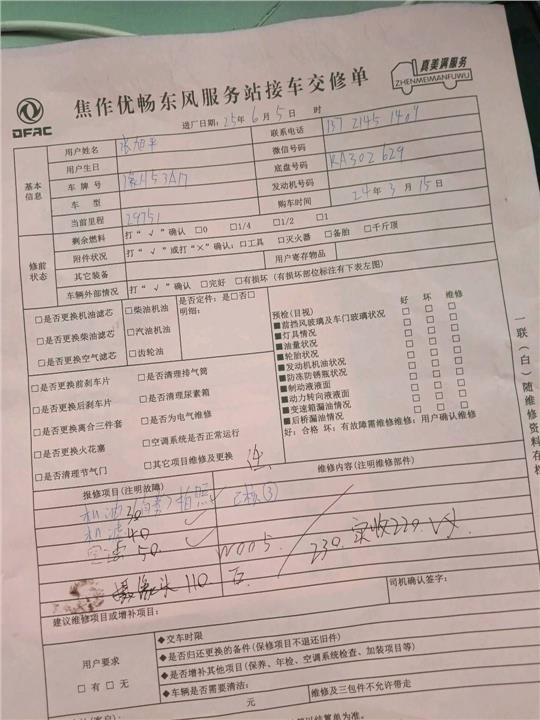 DFAC
焦作优畅东风服务站接车交修单
真美满服务
ZHENMEIMANFUWU
送厂日期：25年 6月 5日 时
基本信息
用户姓名
联系电话 137 2145 1404
用户生日
微信号码
车 牌 号 豫H53A17
底盘号码 RA302629
车 型
发动机号码
当前里程 29751
购车时间 24年3月15日
修前状态
剩余燃料 打“√”确认 □0 □1/4 □1/2 □1
附件状况 打“√”或打“×”确认：□工具 □灭火器 □备胎 □千斤顶
其它装备 用户寄存物品
车辆外部情况 打“√”确认 □完好 □有损坏（有损坏部位标注有下表左图）
□是否更换机油滤芯 □柴油机油 是否定件：是□否□
□是否更换柴油滤芯 □汽油机油 明细：
□是否更换空气滤芯 □齿轮油
□是否更换前刹车片 □是否清理排气筒
□是否更换后刹车片 □是否清理尿素箱
□是否更换离合三件套 □是否为电气维修
□是否更换火花塞 □空调系统是否正常运行
□是否清理节气门 □其它项目维修及更换
预检(目视) 好 坏 维修
■前挡风玻璃及车门玻璃状况 □ □ □
■灯具情况 □ □ □
■油量状况 □ □ □
■轮胎状况 □ □ □
■发动机机油状况 □ □ □
■防冻防锈瓶状况 □ □ □
■制动液液面 □ □ □
■动力转向液液面 □ □ □
■变速箱漏油情况 □ □ □
■后桥漏油情况 □ □ □
好：合格 坏：有故障需维修维修：用户确认维修
一联（白）随维修资料存档
报修项目(注明故障) 维修内容(注明维修部件)
机油 30 拍照
机滤 40
50 W005. 230. 实收220.
摄像头 110
司机确认签字：
建议维修项目或增补项目：
用户要求
□ 有 □ 无
◆交车时限
◆是否归还更换的备件(保修项目不退还旧件)
◆是否增补其他项目(保养、年检、空调系统检查、加装项目等)
◆车辆是否需要清洁：
元 维修及三包件不允许带走
结算单为准。